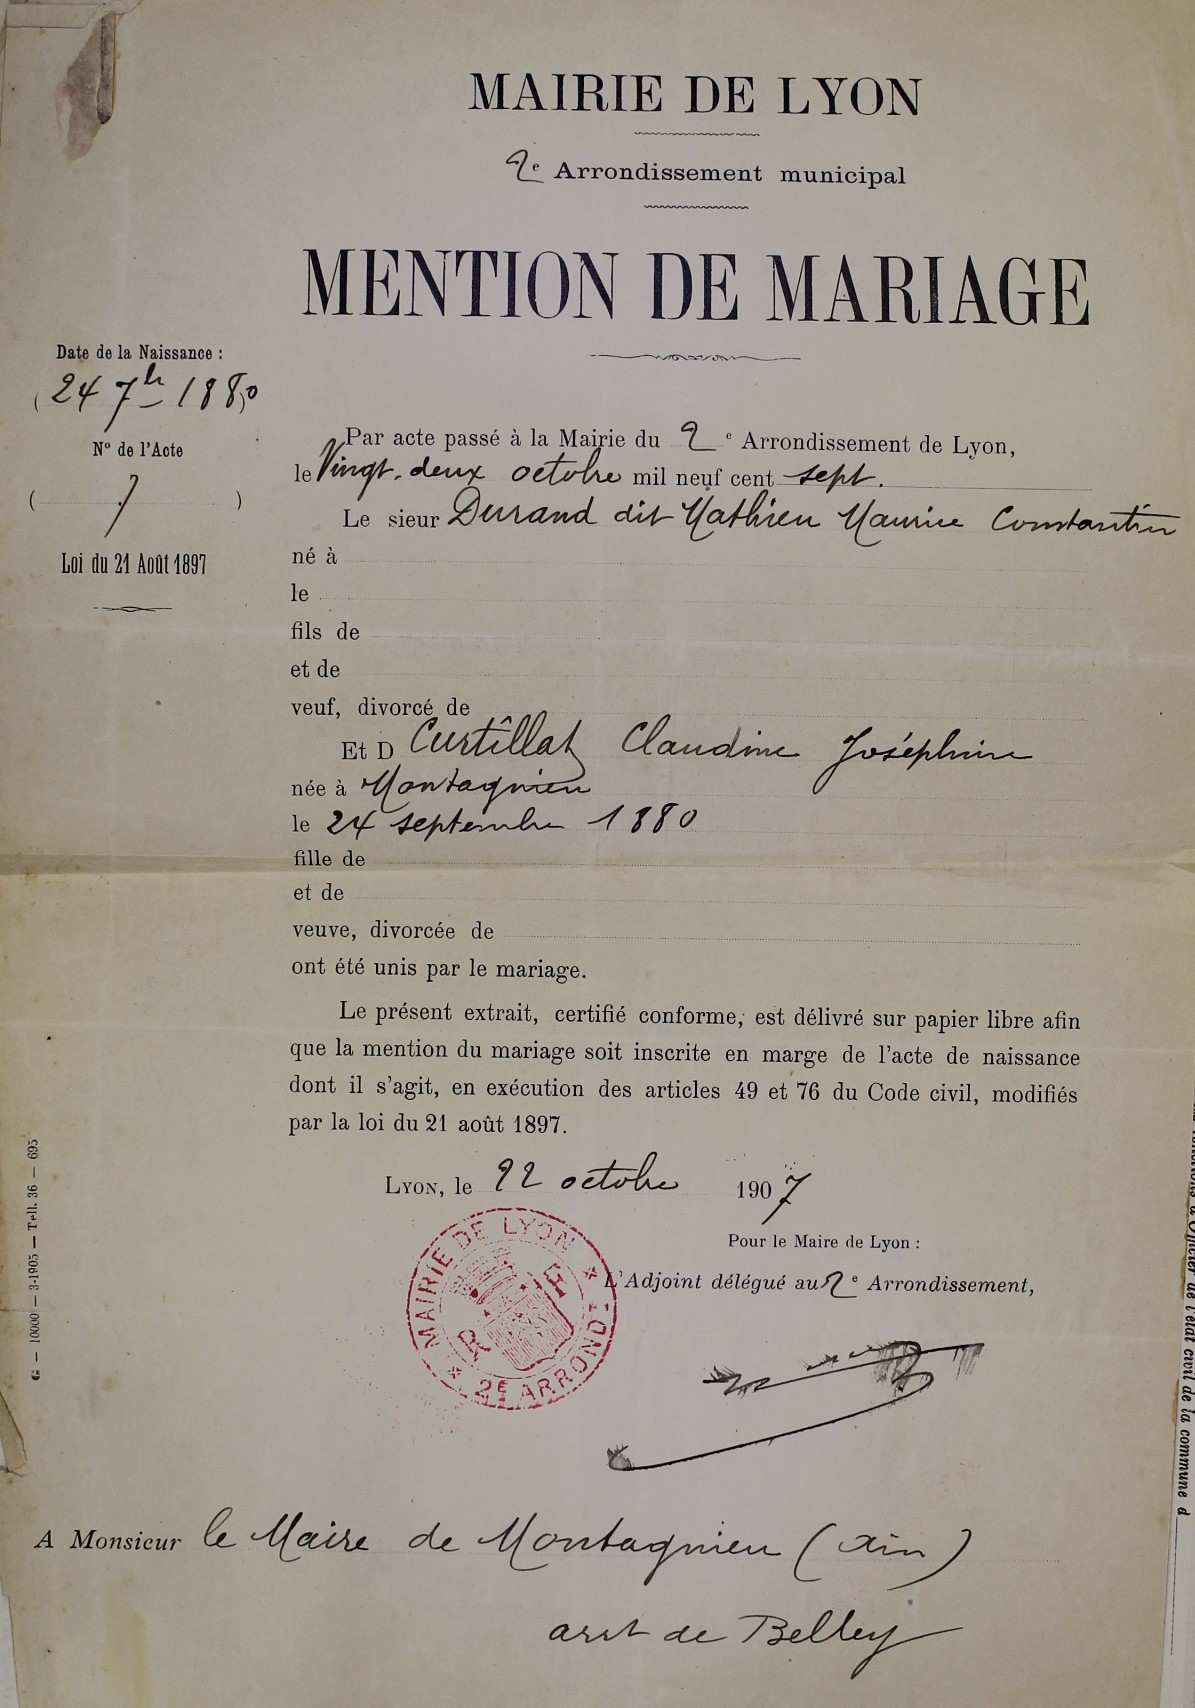 MAIRIE DE LYON
2e Arrondissement municipal
MENTION DE MARIAGE
Date de la Naissance :
(24 7bre 1880)
N° de l'Acte
( 7 )
Loi du 21 Août 1897
Par acte passé à la Mairie du 2e Arrondissement de Lyon,
le Vingt-deux octobre mil neuf cent sept.
Le sieur Durand dit Mathieu Maurice Constantin
né à
le
fils de
et de
veuf, divorcé de
Et D Curtillat Claudine Joséphine
née à Montagnieu
le 24 septembre 1880
fille de
et de
veuve, divorcée de
ont été unis par le mariage.
Le présent extrait, certifié conforme, est délivré sur papier libre afin
que la mention du mariage soit inscrite en marge de l'acte de naissance
dont il s'agit, en exécution des articles 49 et 76 du Code civil, modifiés
par la loi du 21 août 1897.
Lyon, le 22 octobre 1907
Pour le Maire de Lyon :
L'Adjoint délégué au 2e Arrondissement,
MAIRIE DE LYON
R F
* 2E ARROND. *
A Monsieur le Maire de Montagnieu (Ain)
arrt de Belley
G — 10000 — 3-1905 — Tell. 36 — 695
d'Officier de l'état civil de la commune d